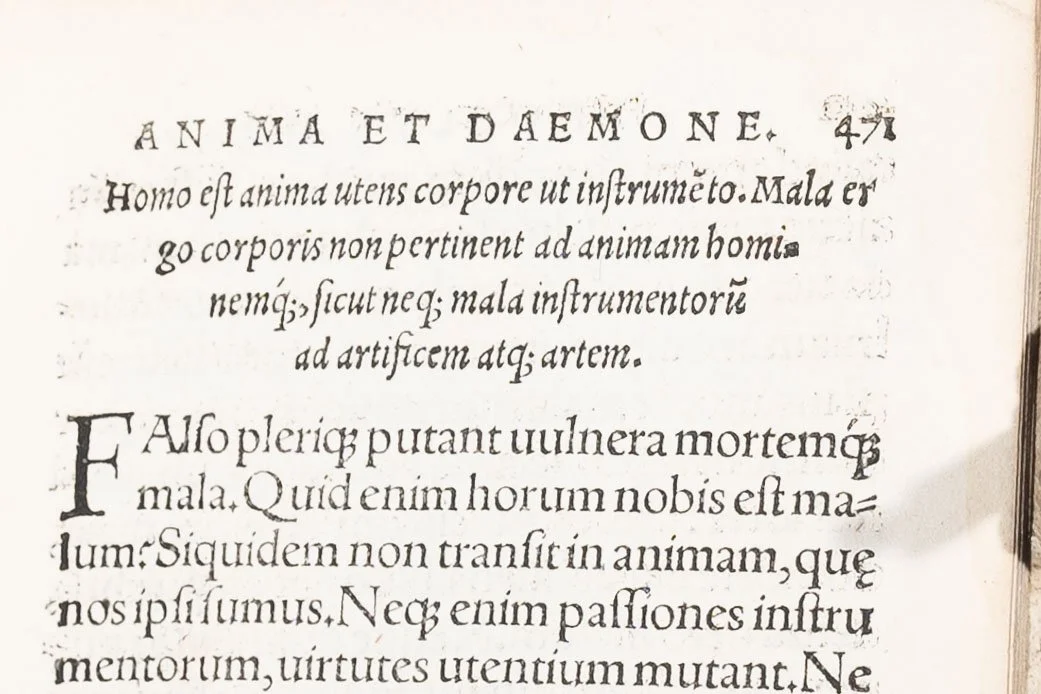 ANIMA ET DAEMONE. 471
Homo eſt anima utens corpore ut inſtrumẽto. Mala er
go corporis non pertinent ad animam homi-
nemq́;, ſicut neq; mala inſtrumentorũ
ad artificem atq; artem.
FAlſo pleriq; putant uulnera mortemq́;
mala. Quid enim horum nobis eſt ma-
lum? Siquidem non tranſit in animam, quę
nos ipſi ſumus. Neq; enim paſſiones inſtru
mentorum, uirtutes utentium mutant. Ne